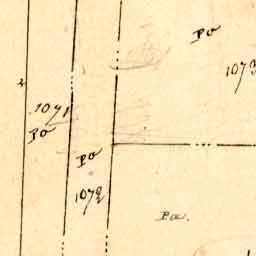 Pa
1073
1071
Pa
Pa
1072
Pa.